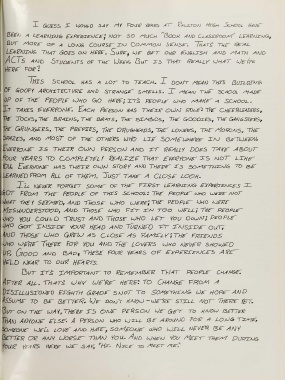 I GUESS I WOULD SAY MY FOUR YEARS AT RALSTON HIGH SCHOOL HAVE
BEEN A LEARNING EXPERIENCE; NOT SO MUCH "BOOK AND CLASSROOM" LEARNING,
BUT MORE OF A LONG COURSE IN COMMON SENSE. THAT'S THE REAL
LEARNING THAT GOES ON HERE. SURE, WE GET OUR ENGLISH AND MATH AND
ACTS AND STUDENTS OF THE WEEK. BUT IS THAT REALLY WHAT WE'RE
HERE FOR?
THIS SCHOOL HAS A LOT TO TEACH. I DON'T MEAN THIS BUILDING
OF GOOFY ARCHITECTURE AND STRANGE SMELLS. I MEAN THE SCHOOL MADE
UP OF THE PEOPLE WHO GO HERE; IT'S PEOPLE WHO MAKE A SCHOOL.
IT TAKES EVERYONE. EACH PERSON HAS THEIR OWN ROLE: THE CHEERLEADERS,
THE JOCKS, THE BRAINS, THE BRATS, THE BIMBOS, THE GOODIES, THE GANGSTERS,
THE GRUNGERS, THE PREPPIES, THE DRUGHEADS, THE LOVERS, THE MORONS, THE
AND MOST OF THE OTHERS WHO LIE SOMEWHERE IN BETWEEN.
EVERYONE IS THEIR OWN PERSON AND IT REALLY DOES TAKE ABOUT
FOUR YEARS TO COMPLETELY REALIZE THAT EVERYONE IS NOT LIKE
EVERYONE HAS THEIR OWN STORY AND THERE IS SOMETHING TO BE
LEARNED FROM ALL OF THEM. JUST TAKE A CLOSE LOOK.
I'LL NEVER FORGET SOME OF THE FIRST LEARNING EXPERIENCES I
GOT FROM THE PEOPLE OF THIS SCHOOL: THE PEOPLE WHO WERE NOT
WHAT THEY SEEMED, AND THOSE WHO WERE; THE PEOPLE WHO WERE
MISUNDERSTOOD, AND THOSE WHO FIT IN TOO WELL; THE PEOPLE
YOU COULD TRUST AND THOSE WHO LET YOU DOWN; PEOPLE
WHO GOT INSIDE YOUR HEAD AND TURNED IT INSIDE OUT,
AND THOSE WHO GREW AS CLOSE AS FAMILY; THE FRIENDS
WHO WERE THERE FOR YOU AND THE LOVERS WHO NEVER SHOWED
UP. GOOD AND BAD, THESE FOUR YEARS OF EXPERIENCES ARE
HELD NEAR TO OUR HEARTS.
BUT IT'S IMPORTANT TO REMEMBER THAT PEOPLE CHANGE.
AFTER ALL, THAT'S WHY WE'RE HERE: TO CHANGE FROM A
DISILLUSIONED EIGHTH GRADE SNOT TO SOMETHING WE HOPE AND
ASSUME TO BE BETTER. WE DON'T KNOW - WE'RE STILL NOT THERE YET.
BUT ON THE WAY, THERE IS ONE PERSON WE GET TO KNOW BETTER
THAN ANYONE ELSE: A PERSON WHO WILL BE AROUND FOR A LONG TIME,
SOMEONE WE'LL LOVE AND HATE, SOMEONE WHO WILL NEVER BE ANY
BETTER OR ANY WORSE THAN YOU. AND WHEN YOU MEET THEM DURING
YOUR YEARS HERE WE SAY, "HI. NICE TO MEET ME."